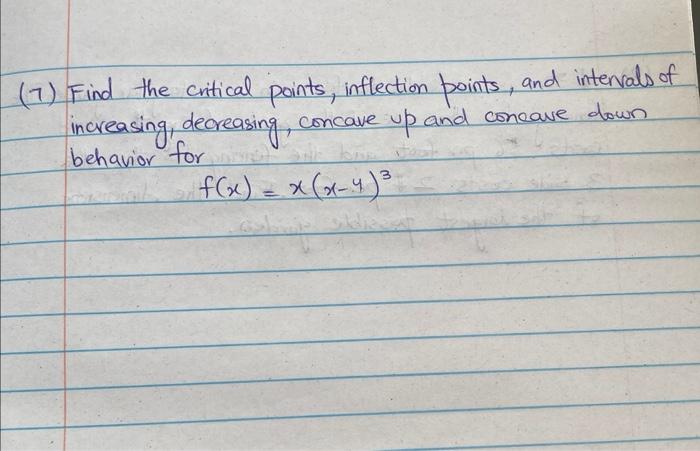 (7) Find the critical points, inflection points, and intervals of
increasing, decreasing, concave up and concave down
behavior for
f(x) = x(x-4)³